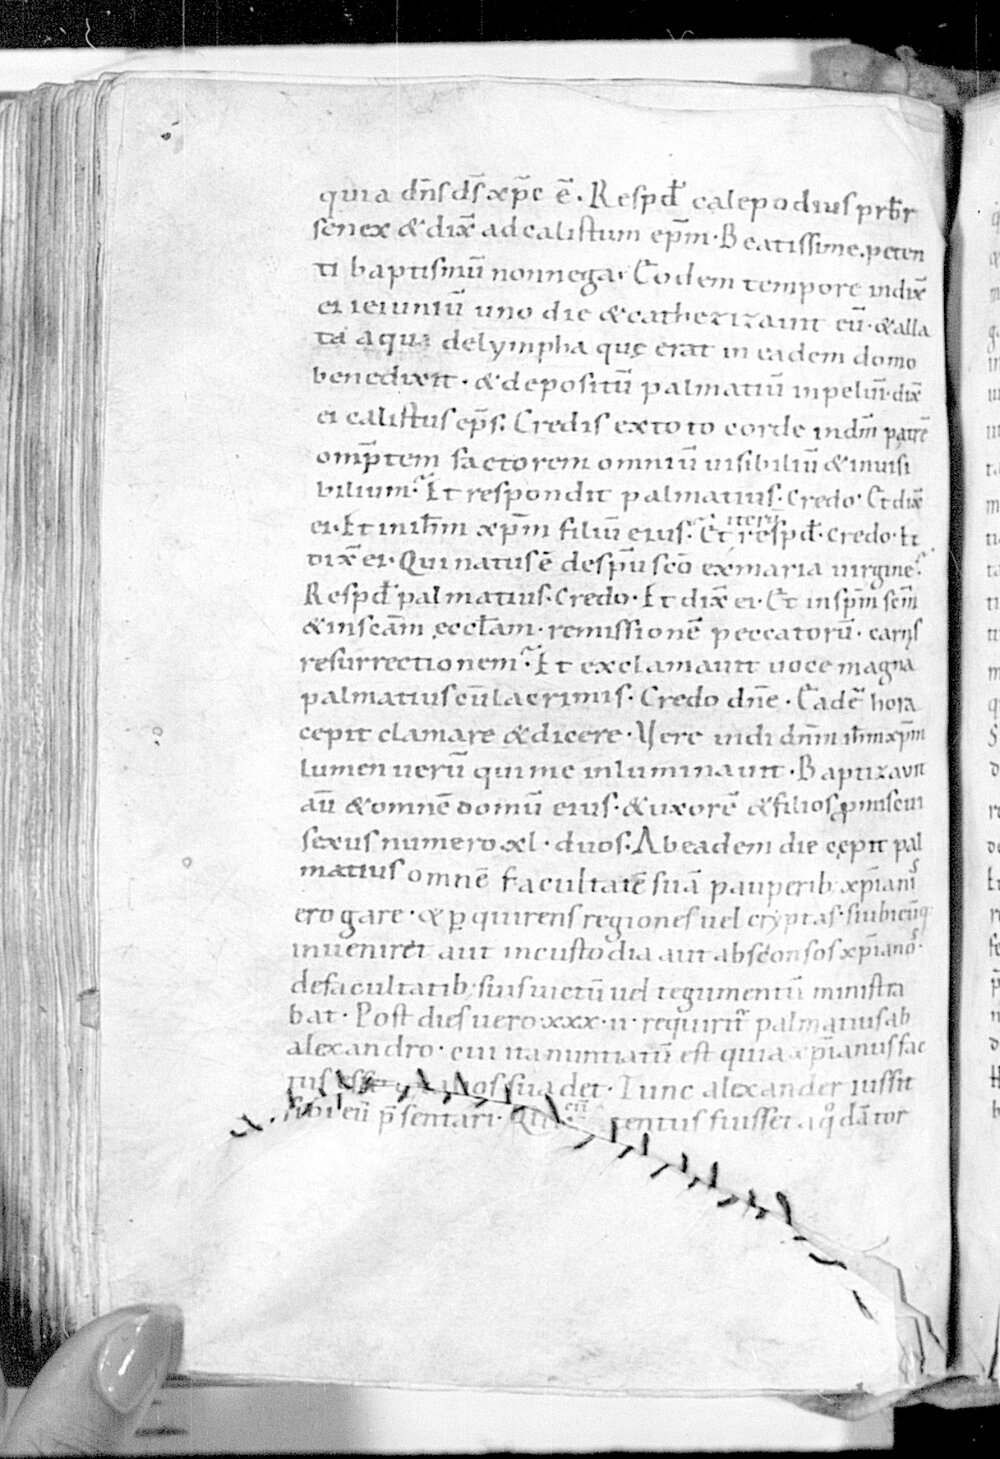 quia dn̄s ds̄ xp̄c ē. Respd̄ calepodius prb̄r
senex & dix̄ ad calistum ep̄m. Beatissime. peten
ti baptismū non nega. Eodem tempore indix̄
ei ieiuniū uno die & cathezizauit eū. & alla
ta aqua de lympha quę erat in eadem domo
benedixit. & depositū palmatiū in peluī. dix̄
ei calistus ep̄s. Credis ex toto corde in dm̄ patrē
omp̄tem factorem omniū uisibiliū & inuisi
bilium. Et respondit palmatius. Credo. Et dix̄
ei. Et in ih̄m xp̄m filiū eius. Et iterū respd̄. Credo. Et
dix̄ ei. Qui natus ē de sp̄u sc̄o ex maria uirgine.
Respd̄ palmatius. Credo. Et dix̄ ei. Et in sp̄m sc̄m
& in sc̄am ęccl̄am. remissionē peccatorū. carnis
resurrectionem. Et exclamauit uoce magna
palmatius cū lacrimis. Credo dn̄e. Eadē hora
cepit clamare & dicere. Vere uidi dn̄m ih̄m xp̄m
lumen uerū qui me inluminauit. Baptizauit
aū & omnē domū eius. & uxorē & filios promiscui
sexus numero xl. duos. Ab eadem die cępit pal
matius omnē facultatē suā pauperib. xp̄ianis
erogare. & pquirens regiones uel cryptas. si ubicūq
inueniret aut in custodia aut absconsos xp̄ianos.
de facultatib. suis uictū uel tegumentū ministra
bat. Post dies uero xxx. ii. requirit̄ palmatius ab
alexandro. cui ita nuntiatū est quia xp̄ianus fac
tus esset & alios suadet. Tunc alexander iussit
sibi eū p̄sentari. Qui cū tentus fuisset a qḋā tor